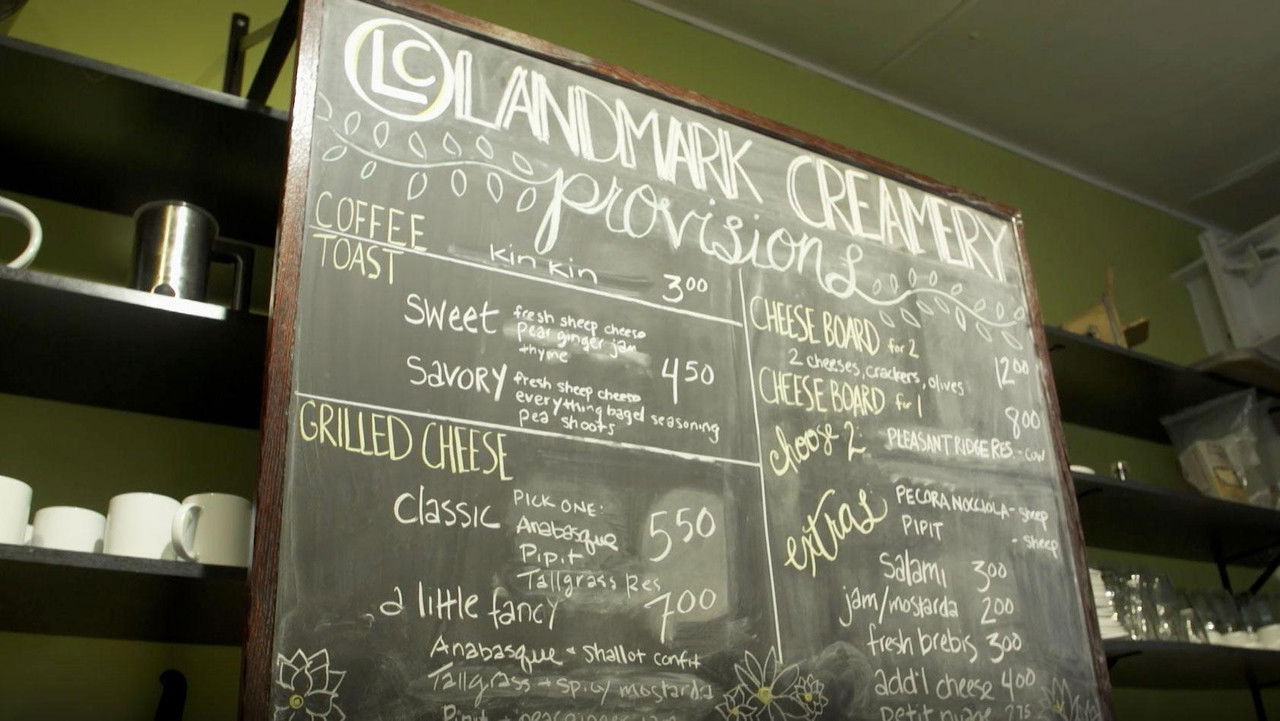 LC LANDMARK CREAMERY
provisions
COFFEE
kin kin 3.00
TOAST
Sweet fresh sheep cheese
pear ginger jam
thyme
4.50
Savory fresh sheep cheese
everything bagel seasoning
pea shoots
GRILLED CHEESE
classic PICK ONE:
Anabasque
Pipit
Tallgrass Res
5.50
a little fancy 7.00
Anabasque + shallot confit
Tallgrass + spicy mostarda
Pipit +
CHEESE BOARD for 2
2 cheeses, crackers, olives 12.00
CHEESE BOARD for 1
8.00
choose 2: PLEASANT RIDGE RES. - cow
PECORA NOCCIOLA - sheep
PIPIT - sheep
extras
Salami 3.00
jam/mostarda 2.00
fresh brebis 3.00
add'l cheese 4.00
petit